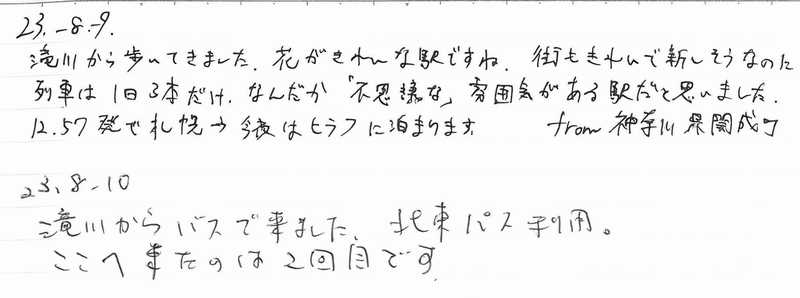 23.-8-9.
滝川から歩いてきました。花がきれいな駅ですね。街もきれいで新しそうなのに
列車は1日3本だけ。なんだか「不思議な」雰囲気がある駅だと思いました。
12.57発で札幌→今夜はヒラフに泊まります from 神奈川県開成町
23.8-10
滝川からバスで来ました。北東パス利用。
ここへ来たのは2回目です